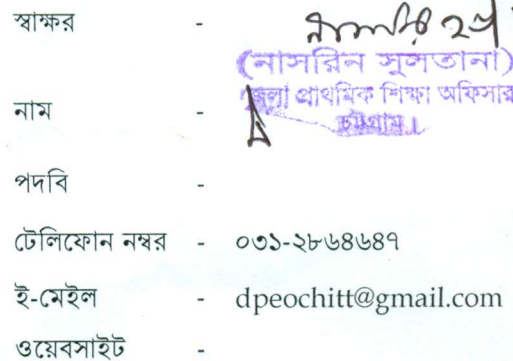 স্বাক্ষর -
(নাসরিন সুলতানা)
জেলা প্রাথমিক শিক্ষা অফিসার
নাম -
চট্টগ্রাম।
পদবি -
টেলিফোন নম্বর - ০৩১-২৮৬৪৬৪৭
ই-মেইল - dpeochitt@gmail.com
ওয়েবসাইট -